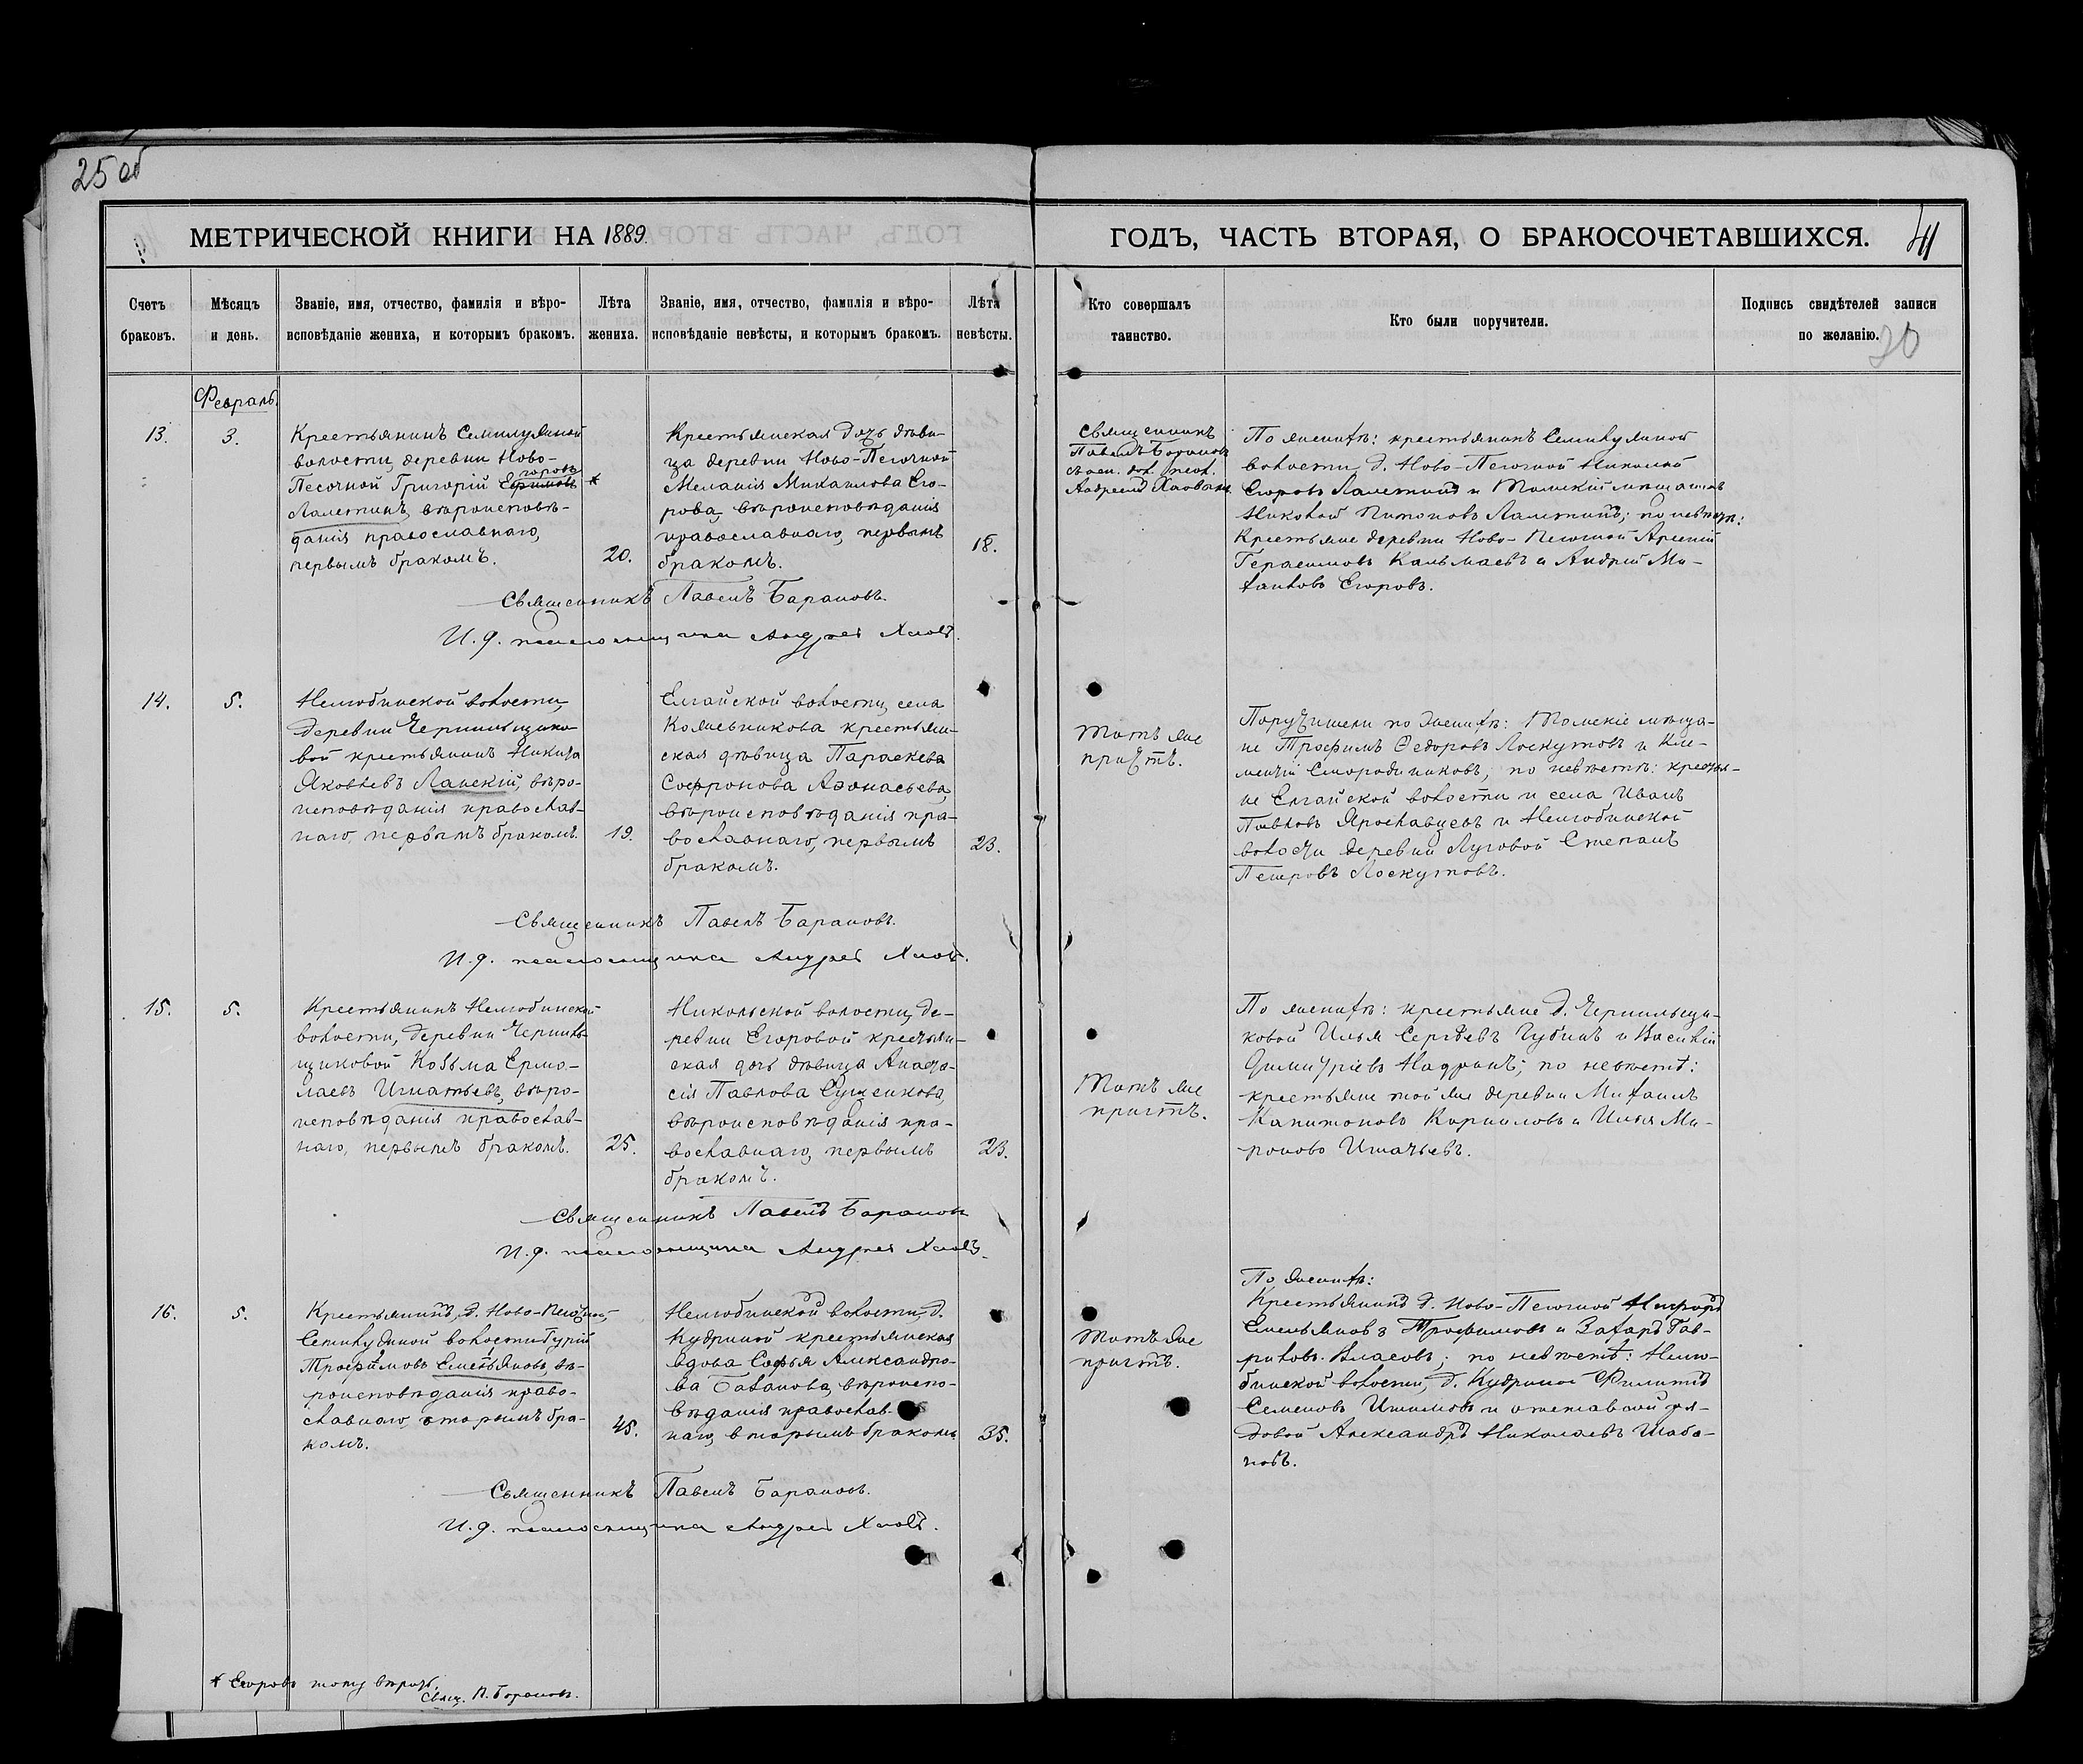 25 об
МЕТРИЧЕСКОЙ КНИГИ НА 1889.
ГОДЪ, ЧАСТЬ ВТОРАЯ, О БРАКОСОЧЕТАВШИХСЯ.
41
Счетъ
браковъ.
Мѣсяцъ
и день.
Званіе, имя, отчество, фамилія и вѣро-
исповѣданіе жениха, и которымъ бракомъ.
Лѣта
жениха.
Званіе, имя, отчество, фамилія и вѣро-
исповѣданіе невѣсты, и которымъ бракомъ.
Лѣта
невѣсты.
Кто совершалъ
таинство.
Кто были поручители.
Подпись свидѣтелей записи
по желанію.
Февраль.
13.
3.
Крестьянинъ Семилужной
волости, деревни Ново-
Песочной Григорій Ефимовъ *
горовъ
Лалетинъ, вѣроисповѣ-
данія православнаго,
первымъ бракомъ.
20.
Крестьянская дочь дѣви-
ца деревни Ново-Песочной
Меланія Михаилова Его-
рова, вѣроисповѣданія
православнаго, первымъ
бракомъ.
18.
Священникъ
Павелъ Барановъ
По женихѣ: крестьянинъ Семилужной
волости, д. Ново-Песочной Николай
Егоровъ Лалетинъ и Томскій мѣщанинъ
Николай Лалетинъ; по невѣстѣ:
Крестьяне деревни Ново-Песочной Арсеній
Герасимовъ Кальмаевъ и Андрей Ми-
хаиловъ Егоровъ.
Священникъ Павелъ Барановъ.
И. д. псаломщика Андрей
14.
5.
Нелюбинской волости,
деревни Чернильщико-
вой крестьянинъ Никита
Яковлевъ Ланскій, вѣро-
исповѣданія православ-
наго, первымъ бракомъ.
19.
Елгайской волости, села
Кожевникова крестьян-
ская дѣвица Параскева
Софронова Аѳонасьева,
вѣроисповѣданія пра-
вославнаго, первымъ
бракомъ.
23.
Тотъ же
причтъ.
Поручители по женихѣ: Томскіе мѣща-
не Трофимъ Федоровъ Лоскутовъ и Кле-
ментій Смородинниковъ; по невѣстѣ: крестья-
не Елгайской волости и села Иванъ
Павловъ Ярославцевъ и Нелюбинской
волости деревни Луговой Степанъ
Петровъ Лоскутовъ.
Священникъ Павелъ Барановъ.
И. д. псаломщика Андрей
15.
5.
Крестьянинъ Нелюбинской
волости, деревни Чернильщиковой
Козьма Ермо-
лаевъ Игнатьевъ, вѣро-
исповѣданія православ-
наго, первымъ бракомъ.
25.
Никольской волости, де-
ревни Егоровой крестьян-
ская дочь дѣвица Анаста-
сія Павлова Сущенкова,
вѣроисповѣданія пра-
вославнаго, первымъ
бракомъ.
23.
Тотъ же
причтъ.
По женихѣ: крестьяне д. Чернильщи-
ковой Илья Сергѣевъ Губинъ и Василій
Димитріевъ; по невѣстѣ:
крестьяне той же деревни Михаилъ
Капитоновъ Корниловъ и Илья Ми-
роновъ Игнатьевъ.
Священникъ Павелъ Барановъ
И. д. псаломщика Андрей
16.
5.
Крестьянинъ, д. Ново-Песочной,
Семилужной волости Гурій
Трофимовъ Емельяновъ, вѣ-
роисповѣданія право-
славнаго, вторымъ бра-
комъ.
45.
Нелюбинской волости, д.
Кудриной крестьянская
вдова Софья Александро-
ва Баланова, вѣроиспо-
вѣданія православ-
наго, вторымъ бракомъ.
35.
Тотъ же
причтъ.
По женихѣ:
Крестьянинъ д. Ново-Песочной
Емельяновъ Трофимовъ и Захаръ Гав-
риловъ Власовъ; по невѣстѣ: Нелю-
бинской волости, д. Кудриной Филиппъ
Семеновъ и отставной ря-
довой Александръ Николаевъ Шаба-
новъ.
Священникъ Павелъ Барановъ.
И. д. псаломщика Андрей
* Егоровъ тому вѣрить.
Свящ. П. Барановъ.